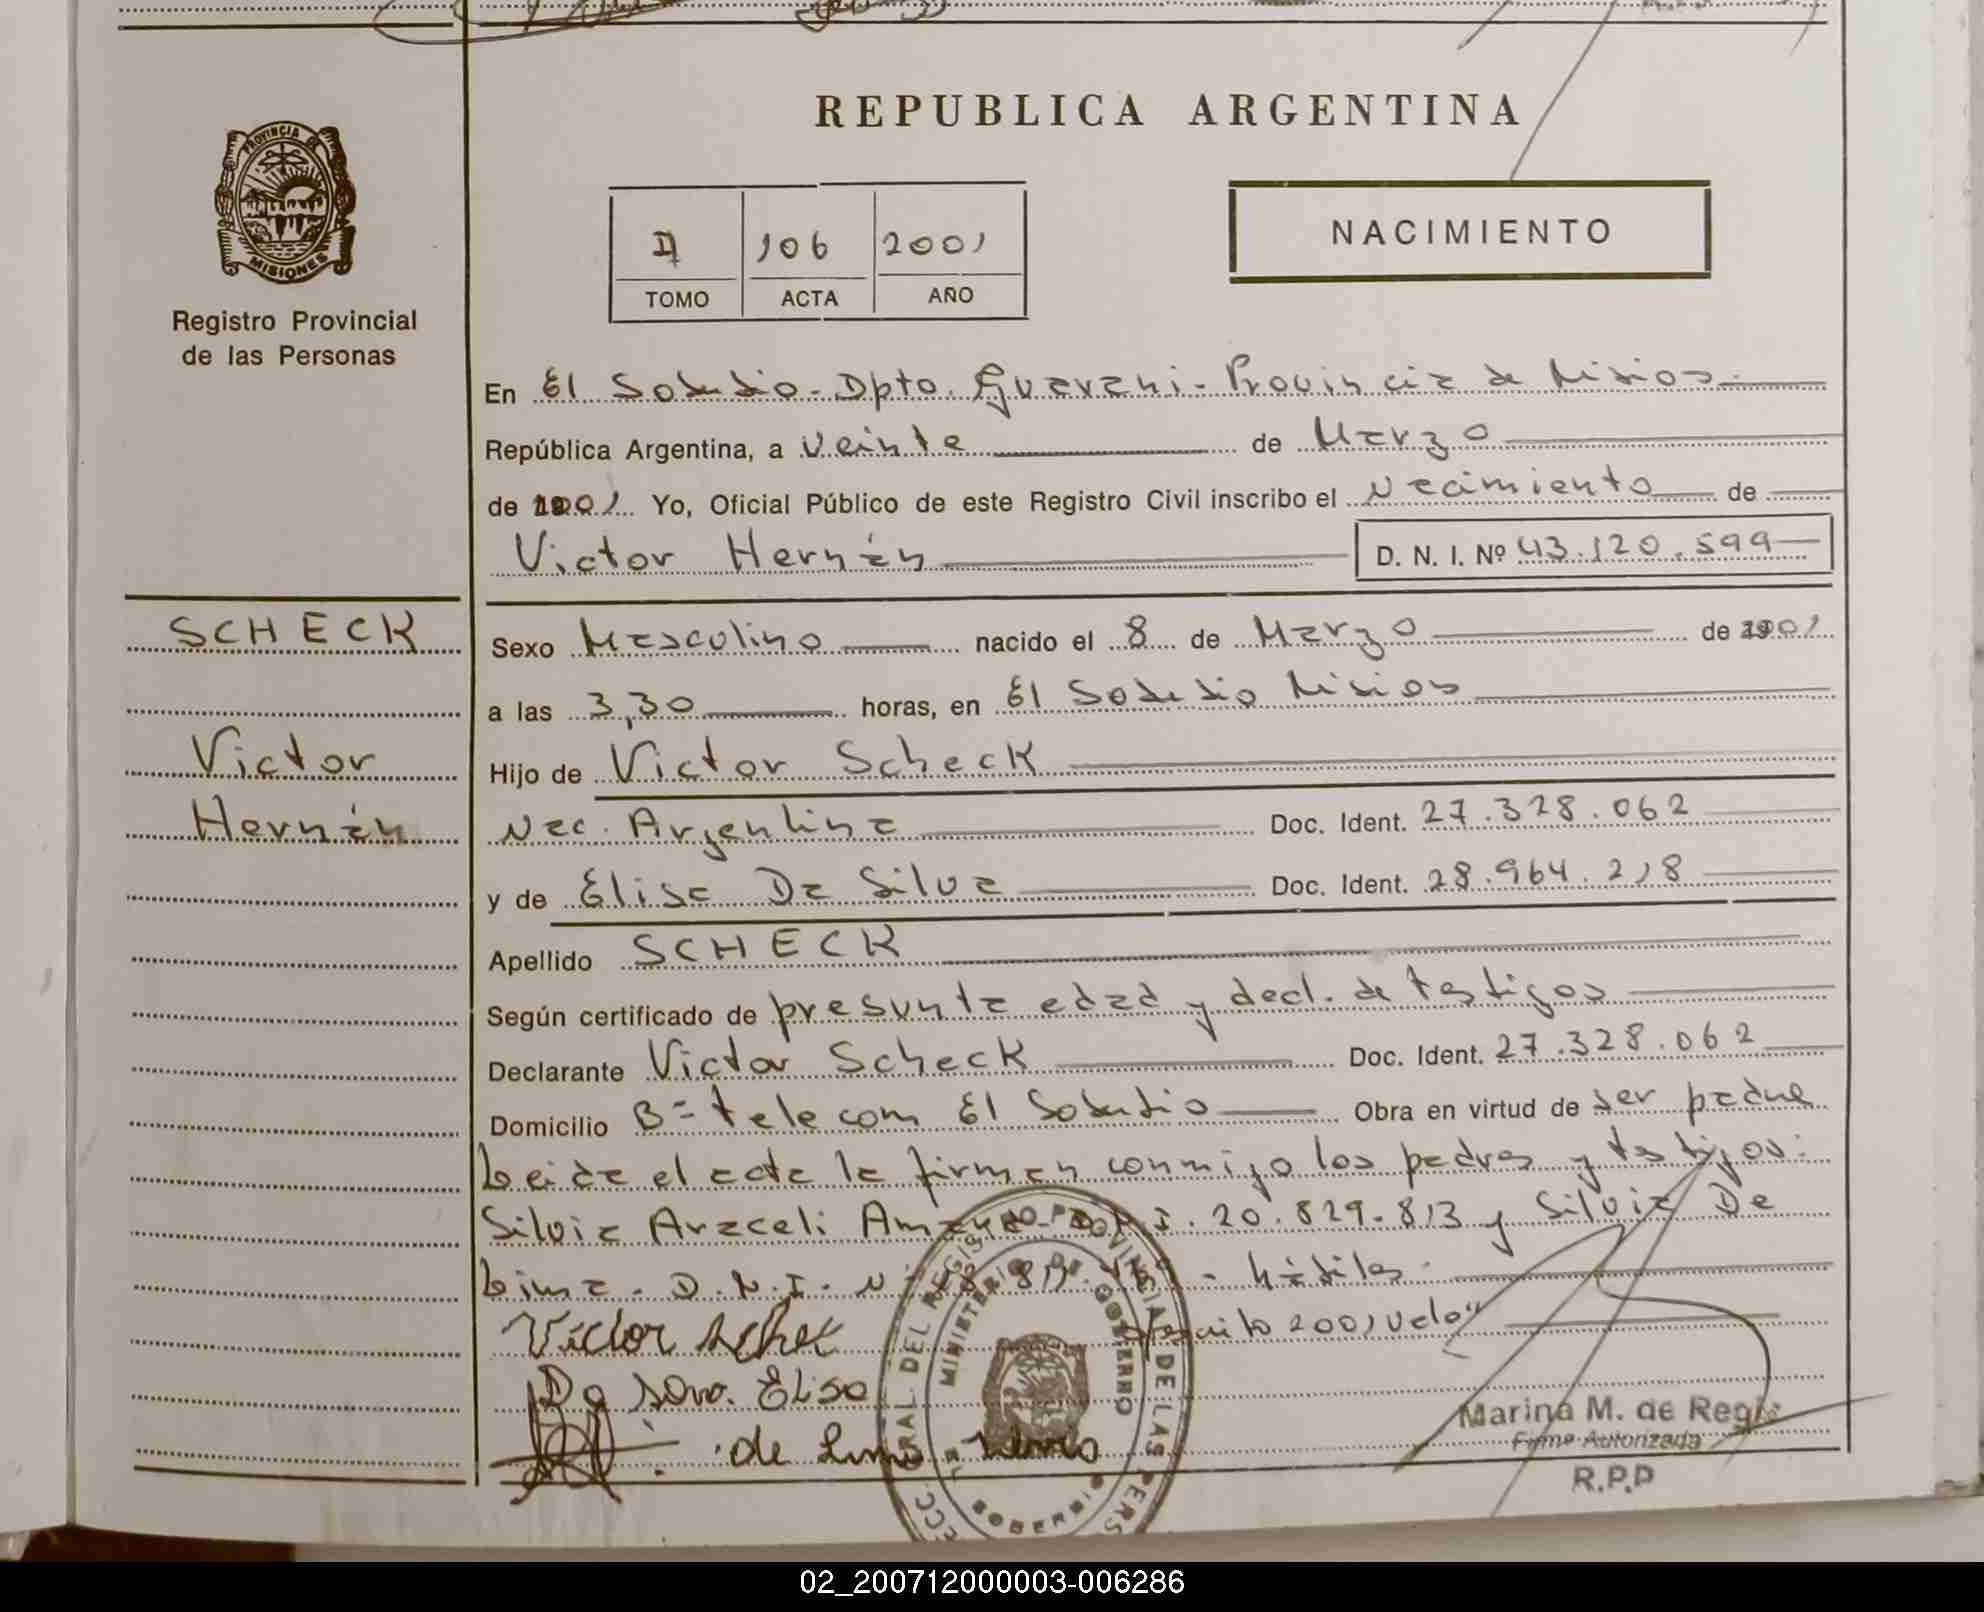 REPUBLICA ARGENTINA
PROVINCIA DE
MISIONES
Registro Provincial
de las Personas
106 2001
TOMO ACTA AÑO
NACIMIENTO
En El Soberbio - Dpto. Guarani - Provincia de Misiones
República Argentina, a veinte de Marzo
de 2001 Yo, Oficial Público de este Registro Civil inscribo el Nacimiento de
Victor Hernán D. N. I. Nº 43.120.599
SCHECK
Victor
Hernán
Sexo Masculino nacido el 8 de Marzo de 2001
a las 3,30 horas, en El Soberbio Misiones
Hijo de Victor Scheck
Nac. Argentina Doc. Ident. 27.328.062
y de Elisa Da Silva Doc. Ident. 28.964.218
Apellido SCHECK
Según certificado de presunta edad y decl. de testigos
Declarante Victor Scheck Doc. Ident. 27.328.062
Domicilio Bº telecom El Soberbio Obra en virtud de ser padre
Leida el acta la firman conmigo los padres y testigos:
Silvia Araceli D.N.I. 20.829.813 y Silvia De
Lima - D.N.I. Nº - hábiles
2001 vale"
Victor
Da Elisa
de Lima
MINISTERIO DE GOBIERNO
Marina M. de Regis
Firma Autorizada
R.P.P
02_200712000003-006286